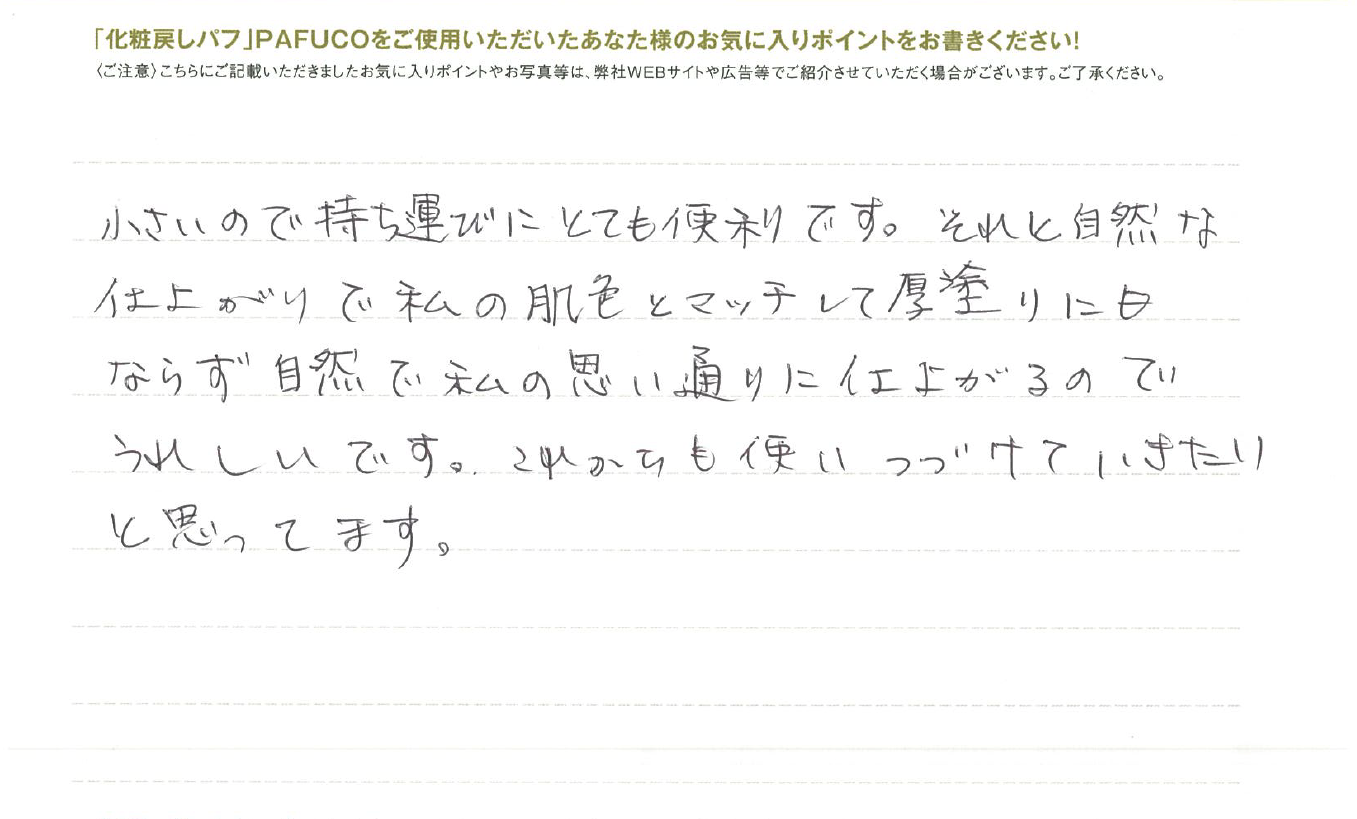 「化粧戻しパフ」PAFUCOをご使用いただいたあなた様のお気に入りポイントをお書きください!
〈ご注意〉こちらにご記載いただきましたお気に入りポイントやお写真等は、弊社WEBサイトや広告等でご紹介させていただく場合がございます。ご了承ください。
小さいので持ち運びにとても便利です。それと自然な
仕上がりで私の肌色とマッチして厚塗りにも
ならず自然で私の思い通りに仕上がるので
うれしいです。これからも使いつづけていきたい
と思ってます。